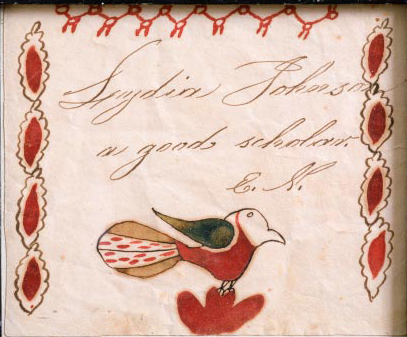 Luydia Johnson
a good scholar.
E. N.